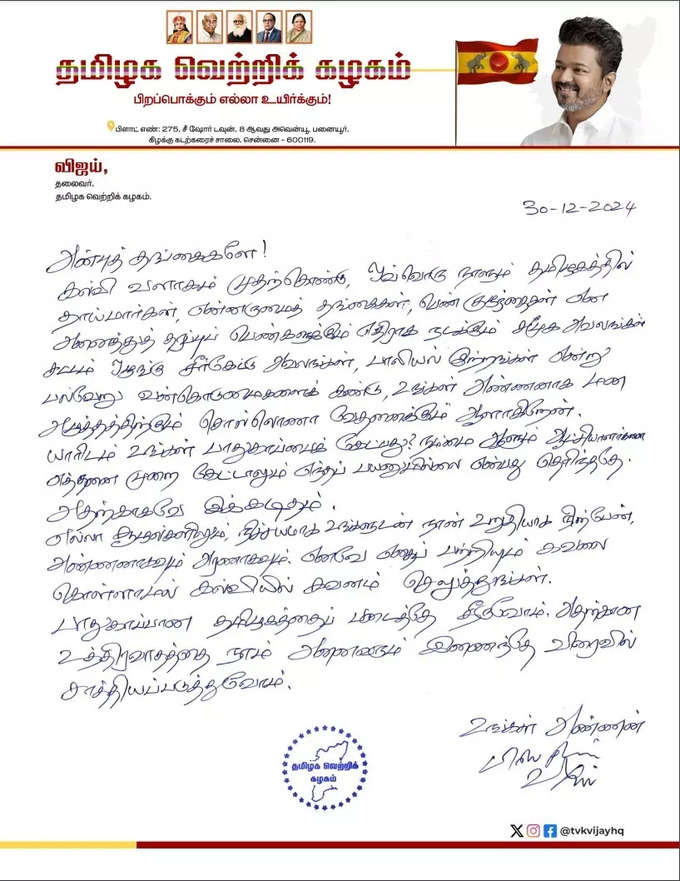 தமிழக வெற்றிக் கழகம்
பிறப்பொக்கும் எல்லா உயிர்க்கும்!
பிளாட் எண்: 275, சீ ஷோர் டவுன், 8 ஆவது அவென்யூ, பனையூர்,
கிழக்கு கடற்கரைச் சாலை, சென்னை - 600119.
விஜய்,
தலைவர்.
தமிழக வெற்றிக் கழகம்.
30-12-2024
அன்புத் தங்கைகளே!
கல்வி வளாகம் முதற்கொண்டு, ஒவ்வொரு நாளும் தமிழகத்தில்
தாய்மார்கள், என்னருமைத் தங்கைகள், பெண் குழந்தைகள் என
அனைத்துத் தரப்புப் பெண்களுக்கும் எதிராக நடக்கும் சமூக அவலங்கள்
சட்டம் ஒழுங்கு சீர்கேட்டு அவலங்கள், பாலியல் குற்றங்கள் என்று
பல்வேறு வன்கொடுமைகளைக் கண்டு, உங்கள் அண்ணனாக மன
அழுத்தத்திற்கும் சொல்லொணா வேதனைக்கும் ஆளாகிறேன்.
யாரிடம் உங்கள் பாதுகாப்பைக் கேட்பது? நம்மை ஆளும் ஆட்சியாளர்களை
எத்தனை முறை கேட்டாலும் எந்தப் பயனுமில்லை என்பது தெரிந்ததே.
அதற்காகவே இக்கடிதம்.
எல்லா சூழல்களிலும், நிச்சயமாக உங்களுடன் நான் உறுதியாக நிற்பேன்,
அண்ணனாகவும் அரணாகவும். எனவே எதைப் பற்றியும் கவலை
கொள்ளாமல் கல்வியில் கவனம் செலுத்துங்கள்.
பாதுகாப்பான தமிழகத்தைப் படைத்தே தீருவோம். அதற்கான
உத்திரவாதத்தை நாம் அனைவரும் இணைந்தே விரைவில்
சாத்தியப்படுத்துவோம்.
உங்கள் அண்ணன்
விஜய்
தமிழக வெற்றிக்
கழகம்
@tvkvijayhq